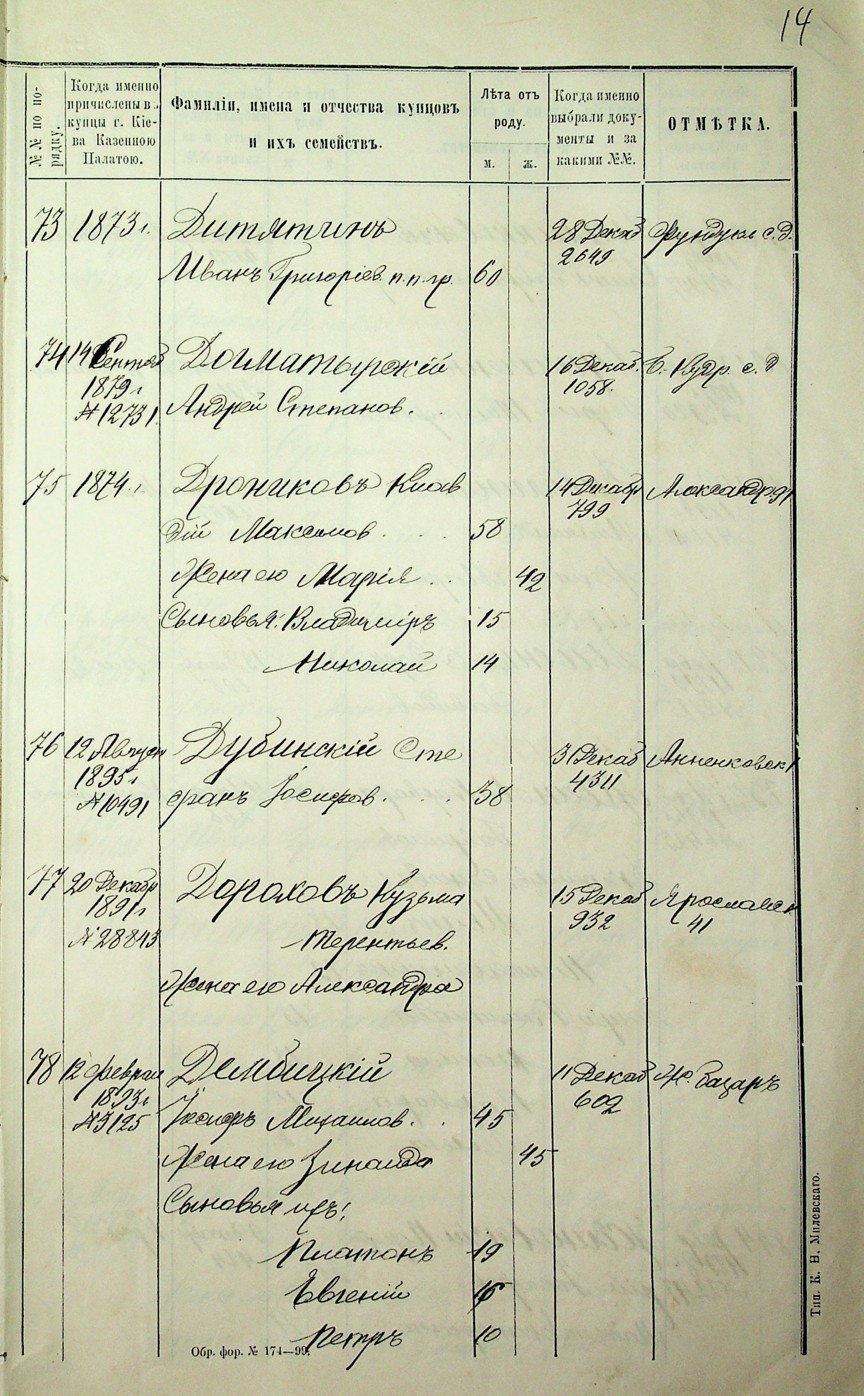 14
№№ по по-
рядку.
Когда именно
причислены въ
купцы г. Кіе-
ва Казенною
Палатою.
Фамиліи, имена и отчества купцовъ
и ихъ семействъ.
Лѣта отъ
роду.
м. ж.
Когда именно
выбрали доку-
менты и за
какими №№.
ОТМѢТКА.
73 1873 г. Дитятинъ 28 Декаб Фундукл с. д.
2649
Иванъ Григоріев. п. п. гр. 60
74 14 Сентяб Догматырскій 16 Декаб. Б. Кудр. с. д
1879 г 1058.
№ 12731 Андрей Степанов.
75 1874 г. Дрониковъ Клав 14 Декабр Александр 91
799
дій Максимов 58
Жена его Марія 42
Сыновья: Владиміръ 15
Николай 14
76 12 Август Дубинскій Сте 31 Декаб Анненковск
1895 г 4311
№ 10491 фанъ Іосифов. 38
77 20 Декабр Дороховъ Кузьма 15 Декаб Ярославск
1891 г 932 41
№ 28843 Терентьев.
Жена его Александра
78 12 Феврал Дембицкій 11 Декаб Ж. базаръ
1893 г 602
№ 3125 Іосифъ Михаилов. 45
Жена его Зинаида 45
Сыновья ихъ:
Платонъ 19
Евгеній
Петръ 10
Обр. фор. № 174—99.
Тип. К. Н. Милевскаго.